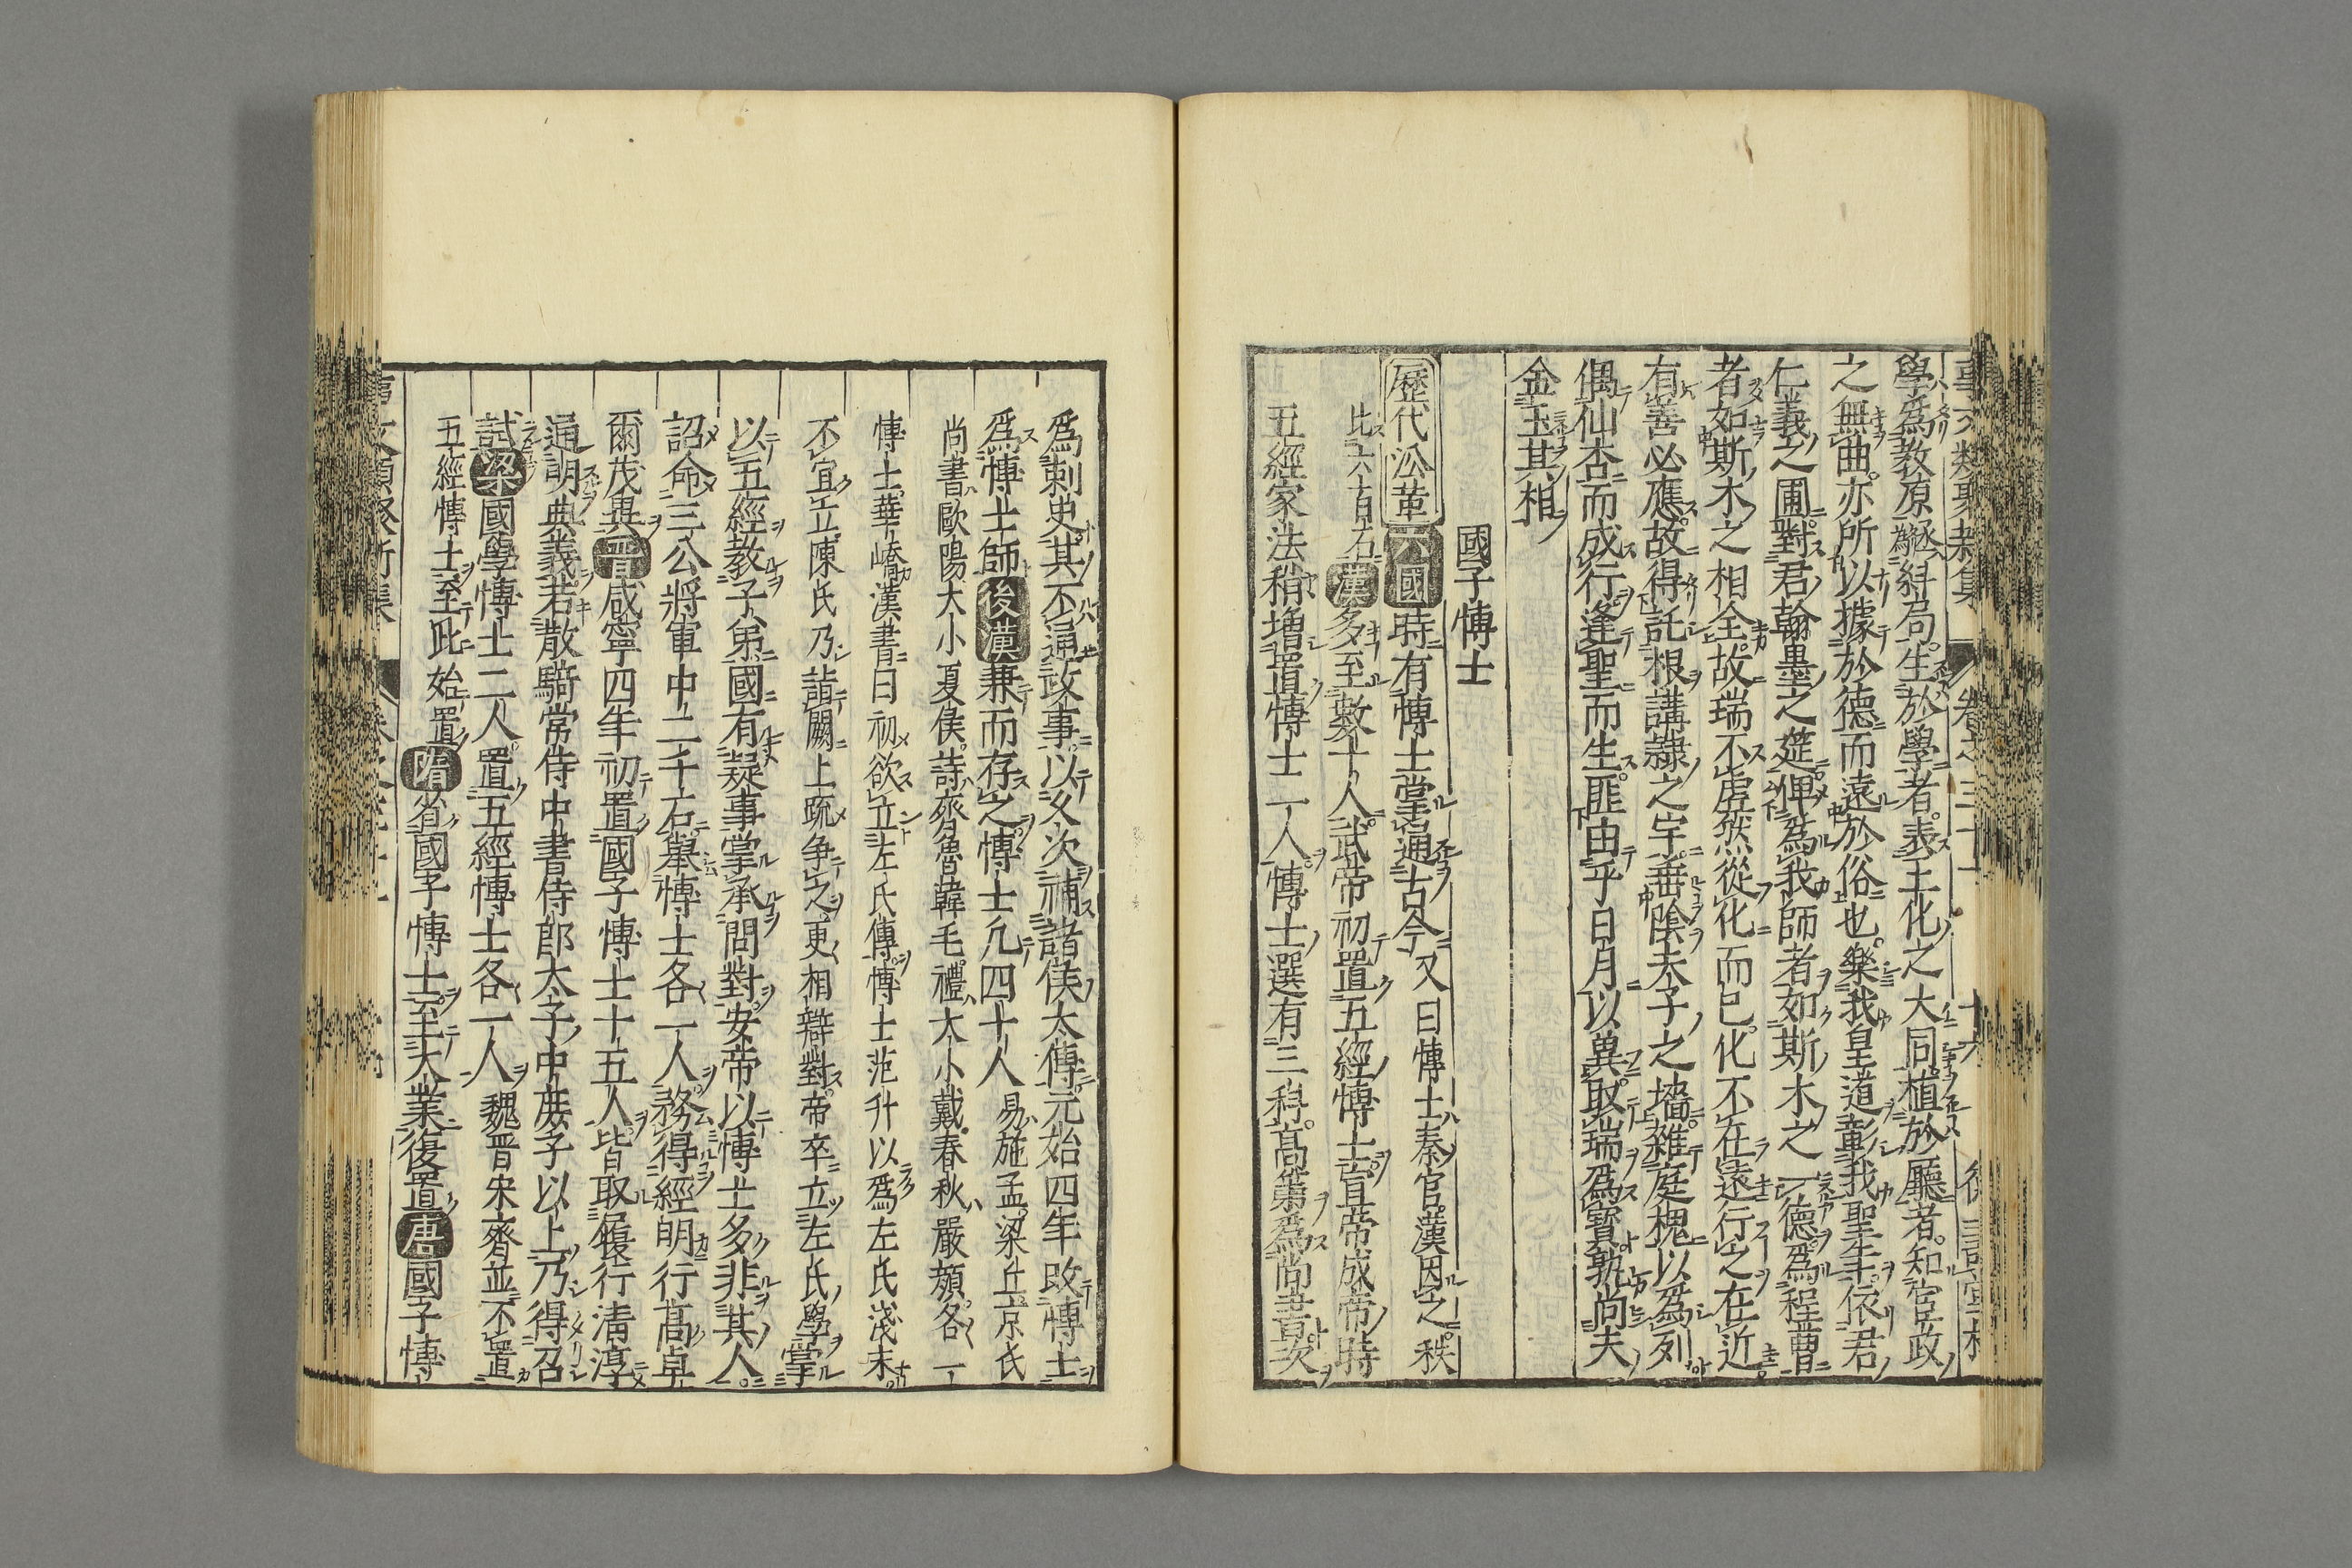 學爲教原繇爲紏局生於學者表王化之大同植於廳者知官政
之無曲亦所以據於德而遠於俗也樂我皇道彰我聖年依君
仁義之圃對君翰墨之筵俾爲我師者如斯木之一德爲程曹
者如斯木之相全故瑞不虗然從化而已化不在遠行之在近
有善必應故得託根講隷之宇垂陰夫子之墻雜庭槐以爲列
偶仙杏而成行逢聖而生匪由乎日月以異取瑞爲寳孰尚夫
金玉其相
國子博士
歷代沿革六國時有博士掌通古今又曰博士秦官漢因之秩
比六百石漢多至數十人武帝初置五經博士宣帝成帝時
五經家法稍增置博士一人博士選有三科高第爲尚書次
爲刺史其不通政事以久次補諸侯太傅元始四年改博士
爲博士師後漢兼而存之博士凡四十人易施孟梁丘京氏
尚書歐陽大小夏侯詩齊魯韓毛禮大小戴春秋嚴顔各一
博士華嶠漢書曰初欲立左氏傳博士范升以爲左氏淺末
不宜立陳氏乃詣闕上疏争之更相辯對帝卒立左氏學掌
以五經教子弟國有疑事掌承問對安帝以博士多非其人
詔命三公將軍中二千石舉博士各一人務得經明行髙卓
爾茂異晋咸寧四年初置國子博士十五人皆取履行清淳
通明典義若散騎常侍中書侍郎太子中庶子以上乃得召
試梁國學博士二人置五經博士各一人魏晋宋齊並不置
五經博士至此始置隋省國子博士至大業復置唐國子博